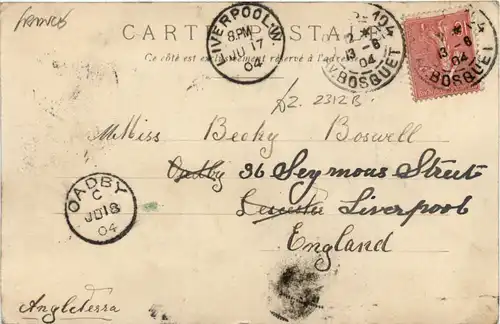 FRANCE
CARTE POSTALE
Ce côté est exclusivement réservé à l'adresse
LIVERPOOL.W.
8 PM
JU 17
04
PARIS-104
2 *
13 - 6
04
AV. BOSQUET
2 *
13 - 6
04
BOSQUET
£2. 2312B
Miss Becky Boswell
Oadby 36 Seymour Street
Leicester Liverpool
England
OADBY
C
JU 18
04
Angleterra